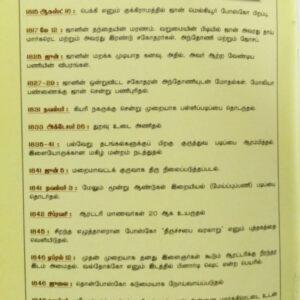 1815 ஆகஸ்ட் 16 : பெக்கி எனும் குக்கிராமத்தில் ஜான் மெல்கியூர் போஸ்கோ பிறப்பு.
1817 மே 12 : ஜானின் தந்தையின் மரணம். வறுமையின் பிடியில் ஜான் அவரது தாய்
மார்கரெட் மற்றும் அவரது இரண்டு சகோதரர்கள். அந்தோணி மற்றும் ஜோசப்.
1825 ஜூன் : ஜானின் மறக்க முடியாத கனவு. அதில், அவர் ஆற்ற வேண்டிய
பணியின் விபரங்கள்.
1827-29 : ஜானின் ஒன்றுவிட்ட சகோதரன் அந்தோணியுடன் மோதல்கள். மோலியா
பண்ணைக்கு ஜான் சென்று பணிபுரிதல்.
1831 நவம்பர் : கியரி நகருக்கு சென்று முறையாக பள்ளிப்படிப்பை தொடருதல்.
1835 அக்டோபர் : துறவு உடை அணிதல்
1835-41 : பல்வேறு தடங்கல்களுக்குப் பிறகு குருத்துவ படிப்பை ஆரம்பித்தல்.
இளையோருக்கான மகிழ் மன்றம் நடத்துதல்
1841 ஜூன் 5 : மறைமாவட்டக் குருவாக திரு நிலைப்படுத்தப்படல்.
1841 நவம்பர் : மேலும் மூன்று ஆண்டுகள் இறையியல் (மேய்ப்புப்பணி) படிப்பை
தொடருதல்.
1842 பிப்ரவரி : ஆரட்டரி மாணவர்கள் 20 ஆக உயருதல்
1845 : சிறந்த எழுத்தாளரான போஸ்கோ "திருச்சபை வரலாறு" எனும் புத்தகத்தை
வெளியிடுதல்.
1846 ஏப்ரல் 12 : முதன் முறையாக தனது இளைஞர்கள் கூடும் ஆரட்டரிக்கு நிரந்தர
இடம் அமைதல். வல்தோக்கோ எனும் இடத்தில் பினார்டி ஷெட் என்ற பெயரில்.
1846 ஜூலை : தொன்போஸ்கோ கடுமையாக நோய்வாய்ப்படுதல்